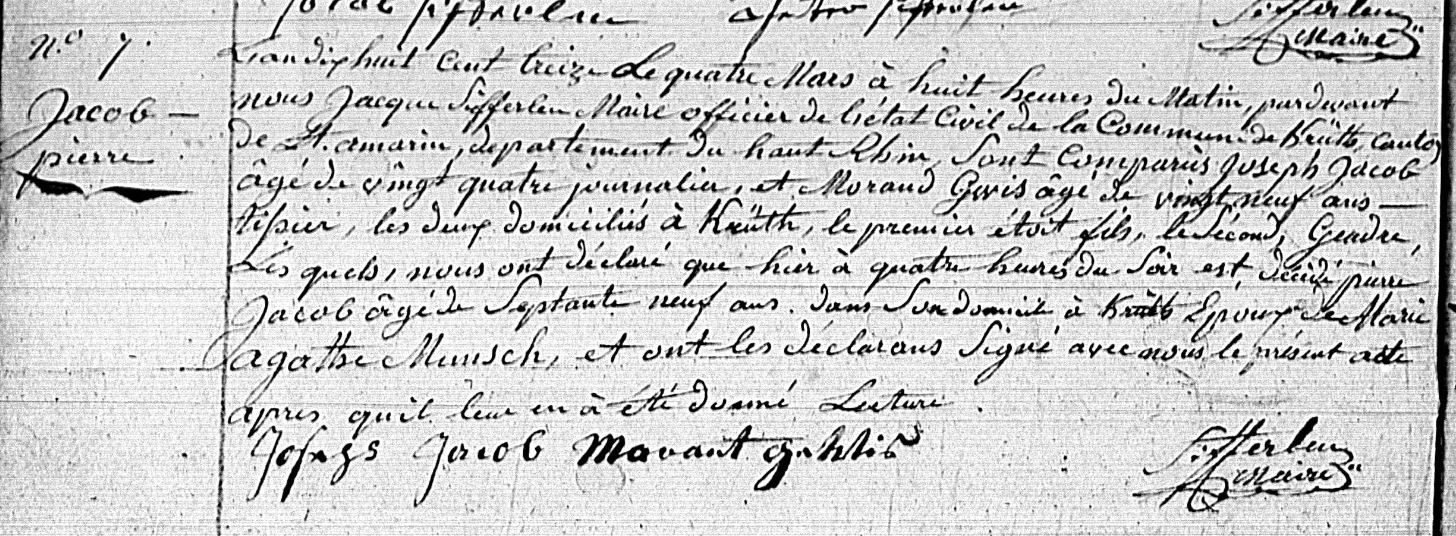 Sifferlen
Maire
N.o 7.
Jacob —
pierre
L'an dix huit cent treize Le quatre Mars à huit heures du Matin, pardevant
nous Jacque Sifferlen Maire officier de l'état Civil de la Commune de Krüth, canton
de St. amarin, departement du haut Rhin, Sont Comparûs Joseph Jacob
âgé de vingt quatre journalier, et Morand Gwis âgé de vingt neuf ans —
tissier, les deux domiciliés à Krüth, le premier étoit fils, le Sécond, Gendre,
Les quels, nous ont déclaré que hier à quatre heures du Soir est décédé pierre
Jacob âgé de Septante neuf ans. dans Son domicile à Krüth Epoux de Marie
agathe Munsch, et ont les déclarans Signé avec nous le présent acte
apres qu'il leur en à été donné Lecture.
Joseph Jacob Morant
Sifferlen
Maire